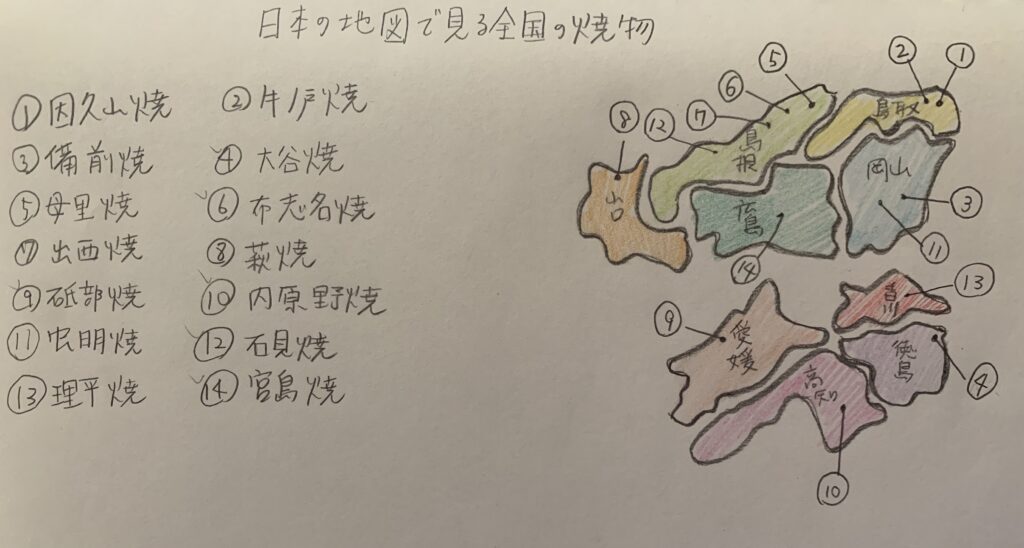 日本の地図で見る全国の焼物
①因久山焼 ②牛ノ戸焼
③備前焼 ④大谷焼
⑤母里焼 ⑥布志名焼
⑦出西焼 ⑧萩焼
⑨砥部焼 ⑩内原野焼
⑪虫明焼 ⑫石見焼
⑬理平焼 ⑭宮島焼
② ①
⑤
⑥
⑧ ⑫ ⑦
鳥取
島根
岡山
山口
広島
③
⑭ ⑪
香川 ⑬
⑨
愛媛
徳島
高知
④
⑩